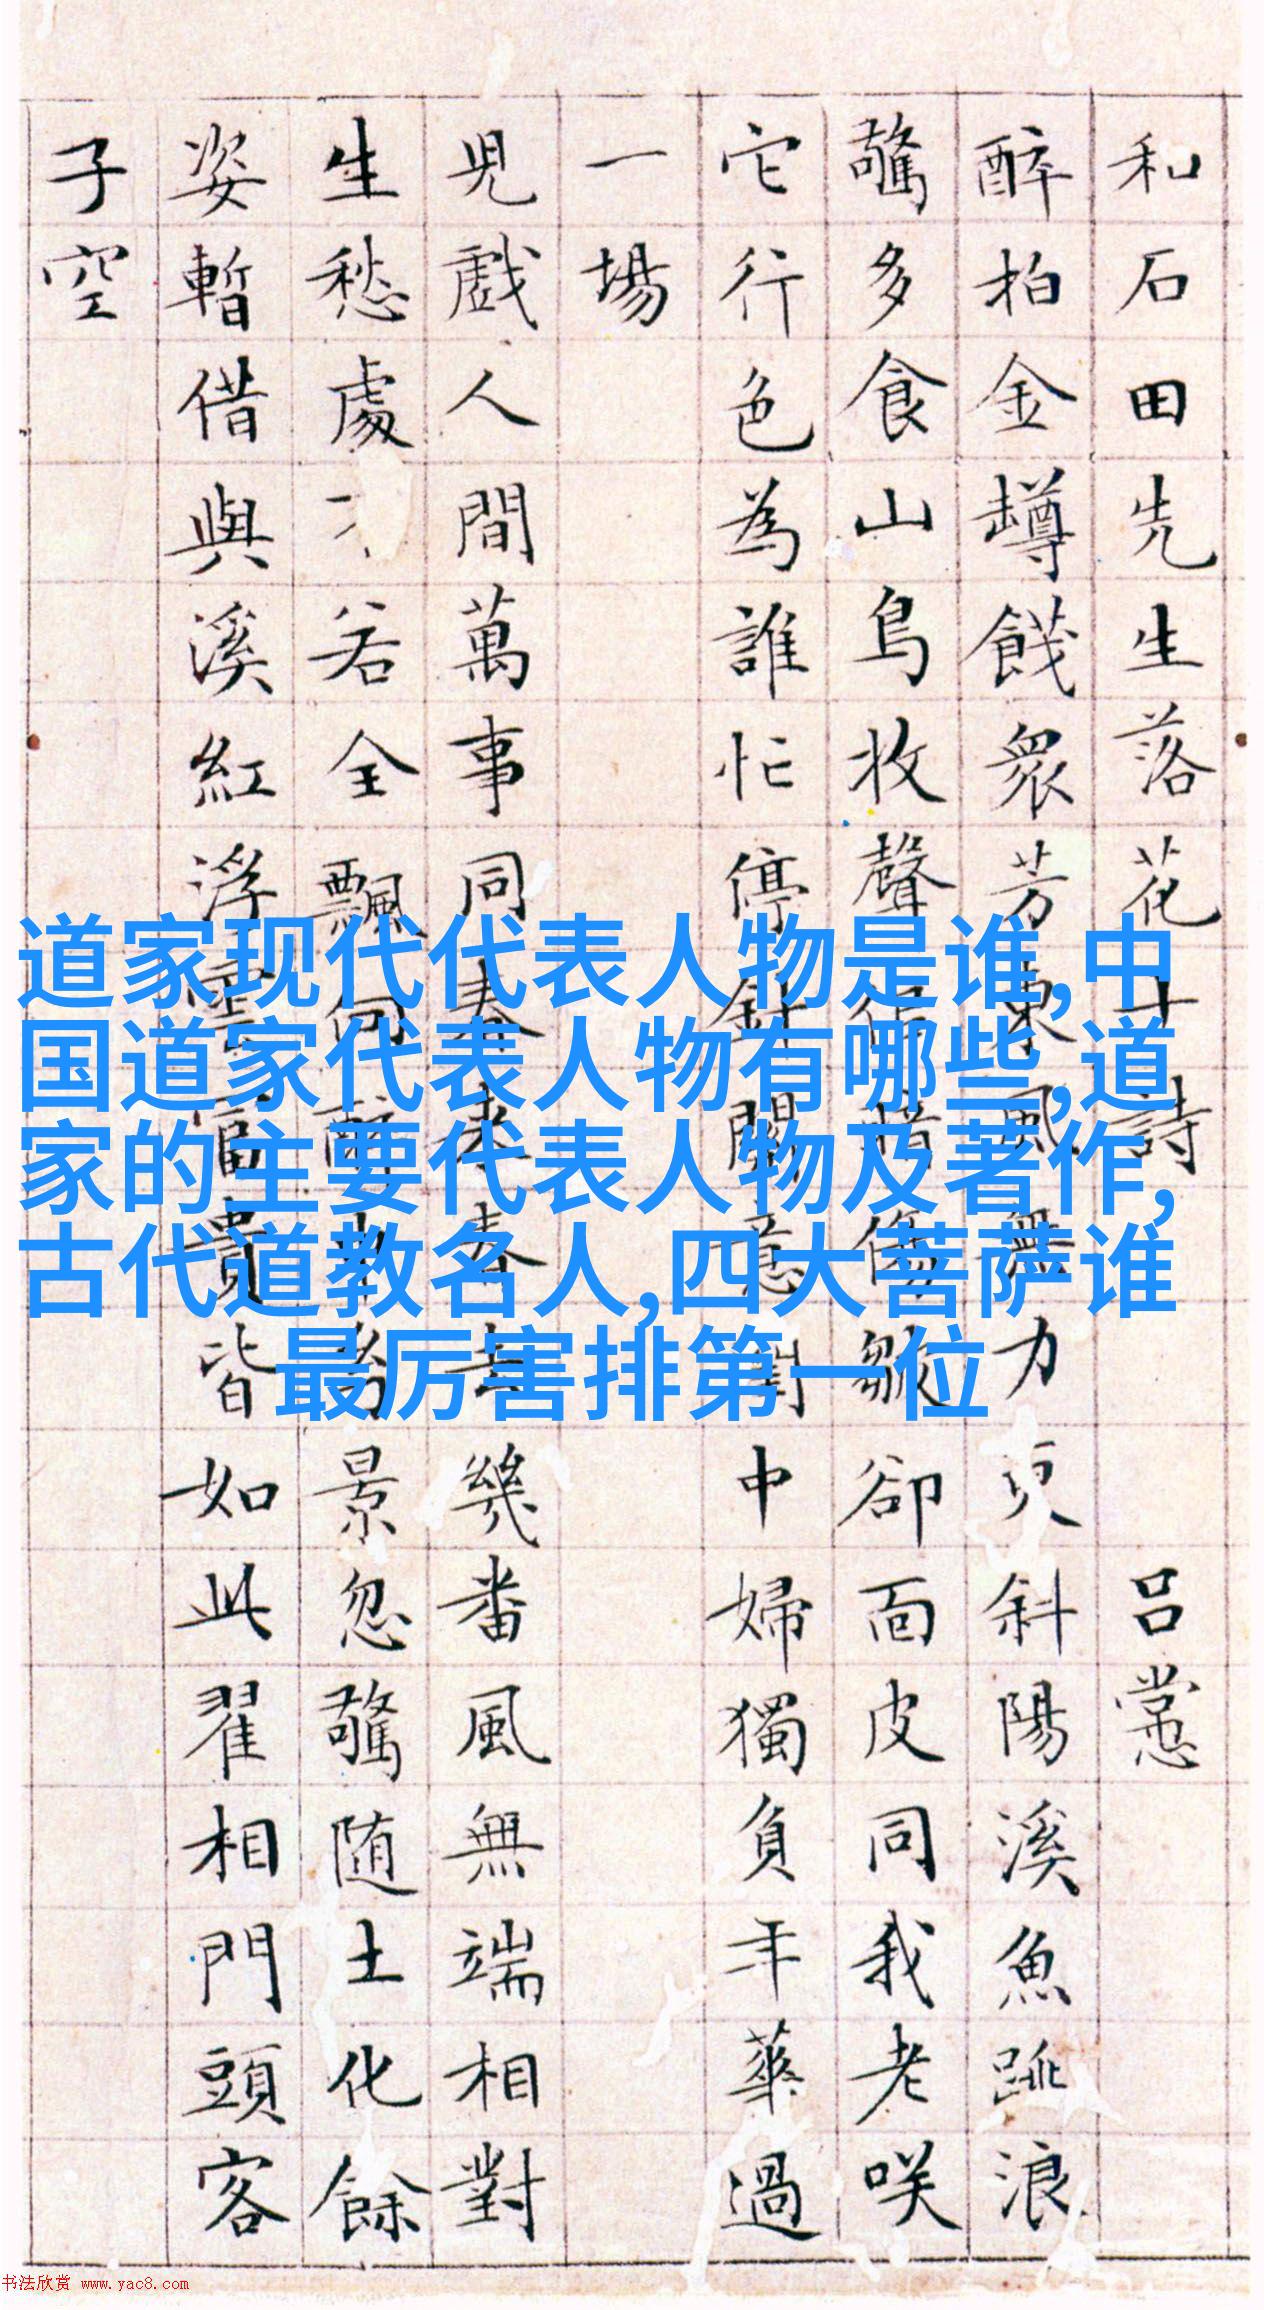 和石田先生落花十詩 呂㦂
醉拍金罇餞衆芳東風無力更斜陽溪魚跳浪
驚多食山鳥收聲作惜傷皺卻面皮同我老咲
它行色為誰忙停針關意中婦獨負年華過
一場
兒戲人間萬事同春來春去幾番風無端相對
生愁處若全飄向醉中老景忽驚随土化餘
姿暫借與溪紅浮雲富貴皆如此翟相門頭客
子空
道家现代代表人物是谁,中
国道家代表人物有哪些,道
家的主要代表人物及著作,
古代道教名人,四大菩萨谁
最厉害排第一位
书法欣赏 www.yac8.com